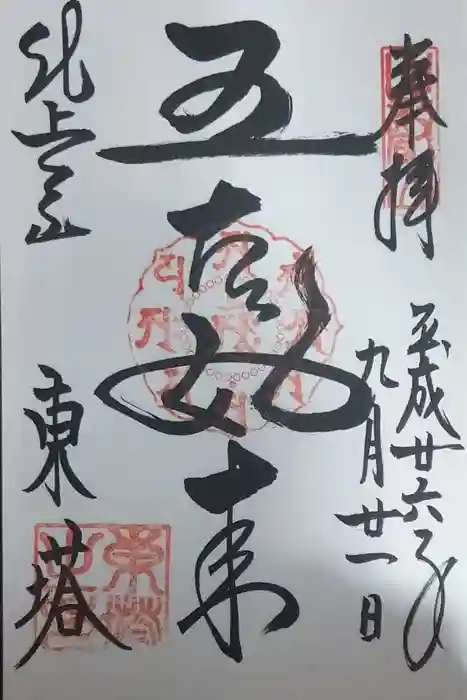 奉拝
平成廿六年
九月廿一日
五智如来
比叡山
東塔